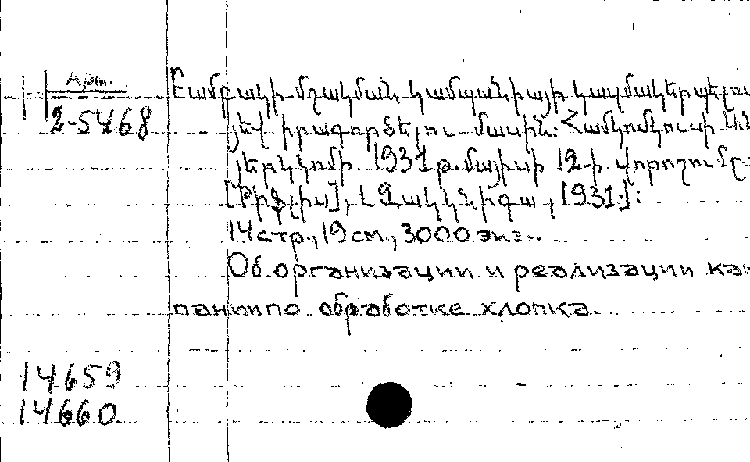 Арм.
2-5468
Բամբակի մշակման կամպանիայի կազմակերպելու
յեվ իրագործելու մասին: Համկոմկուսի
յերկկոմի 1931 թ. մայիսի 12-ի վորոշումը
[Թիֆլիս], [Զակկնիգա, 1931]:
14 стр., 19 см., 3000 экз.
Об организации и реализации кам
пании по обработке хлопка
14659
14660